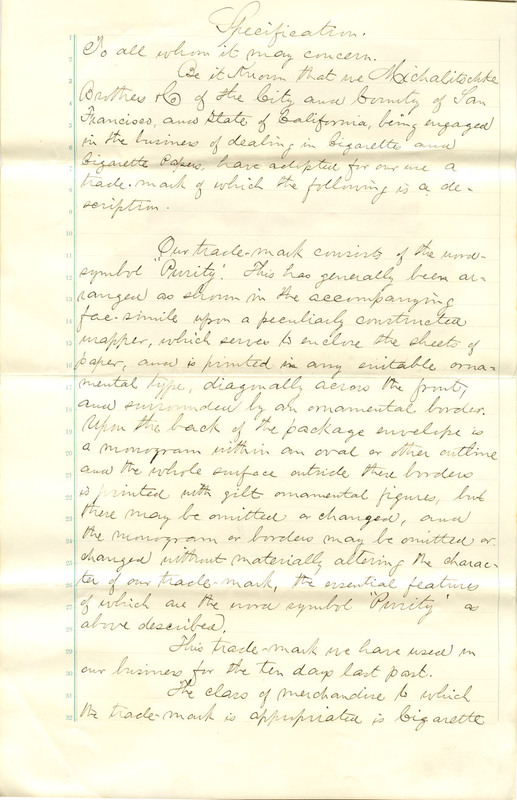 Specification.
1 To all whom it may concern.
2 Be it Known that we Michalitschke
3 Brothers & Co of the City and County of San
4 Francisco, and State of California, being engaged
5 in the business of dealing in Cigarette and
6 Cigarette Papers, have adopted for our use a
7 trade-mark of which the following is a de-
8 scription.
9
10
11 Our trade-mark consists of the word-
12 symbol "Purity". This has generally been ar-
13 ranged as shown in the accompanying
14 fac-simile upon a peculiarly constructed
15 wrapper, which serves to enclose the sheets of
16 paper, and is printed in any suitable orna-
17 mental type, diagonally across the front,
18 and surrounded by an ornamental border.
19 Upon the back of the package envelope is
20 a monogram within an oval or other outline
21 and the whole surface outside these borders
22 is printed with gilt ornamental figures, but
23 these may be omitted or changed, and
24 the monogram or borders may be omitted or
25 changed without materially altering the charac-
26 ter of our trade-mark, the essential features
27 of which are the word symbol "Purity" as
28 above described.
29 This trade-mark we have used in
30 our business for the ten days last past.
31 The class of merchandise to which
32 the trade-mark is appropriated is Cigarette